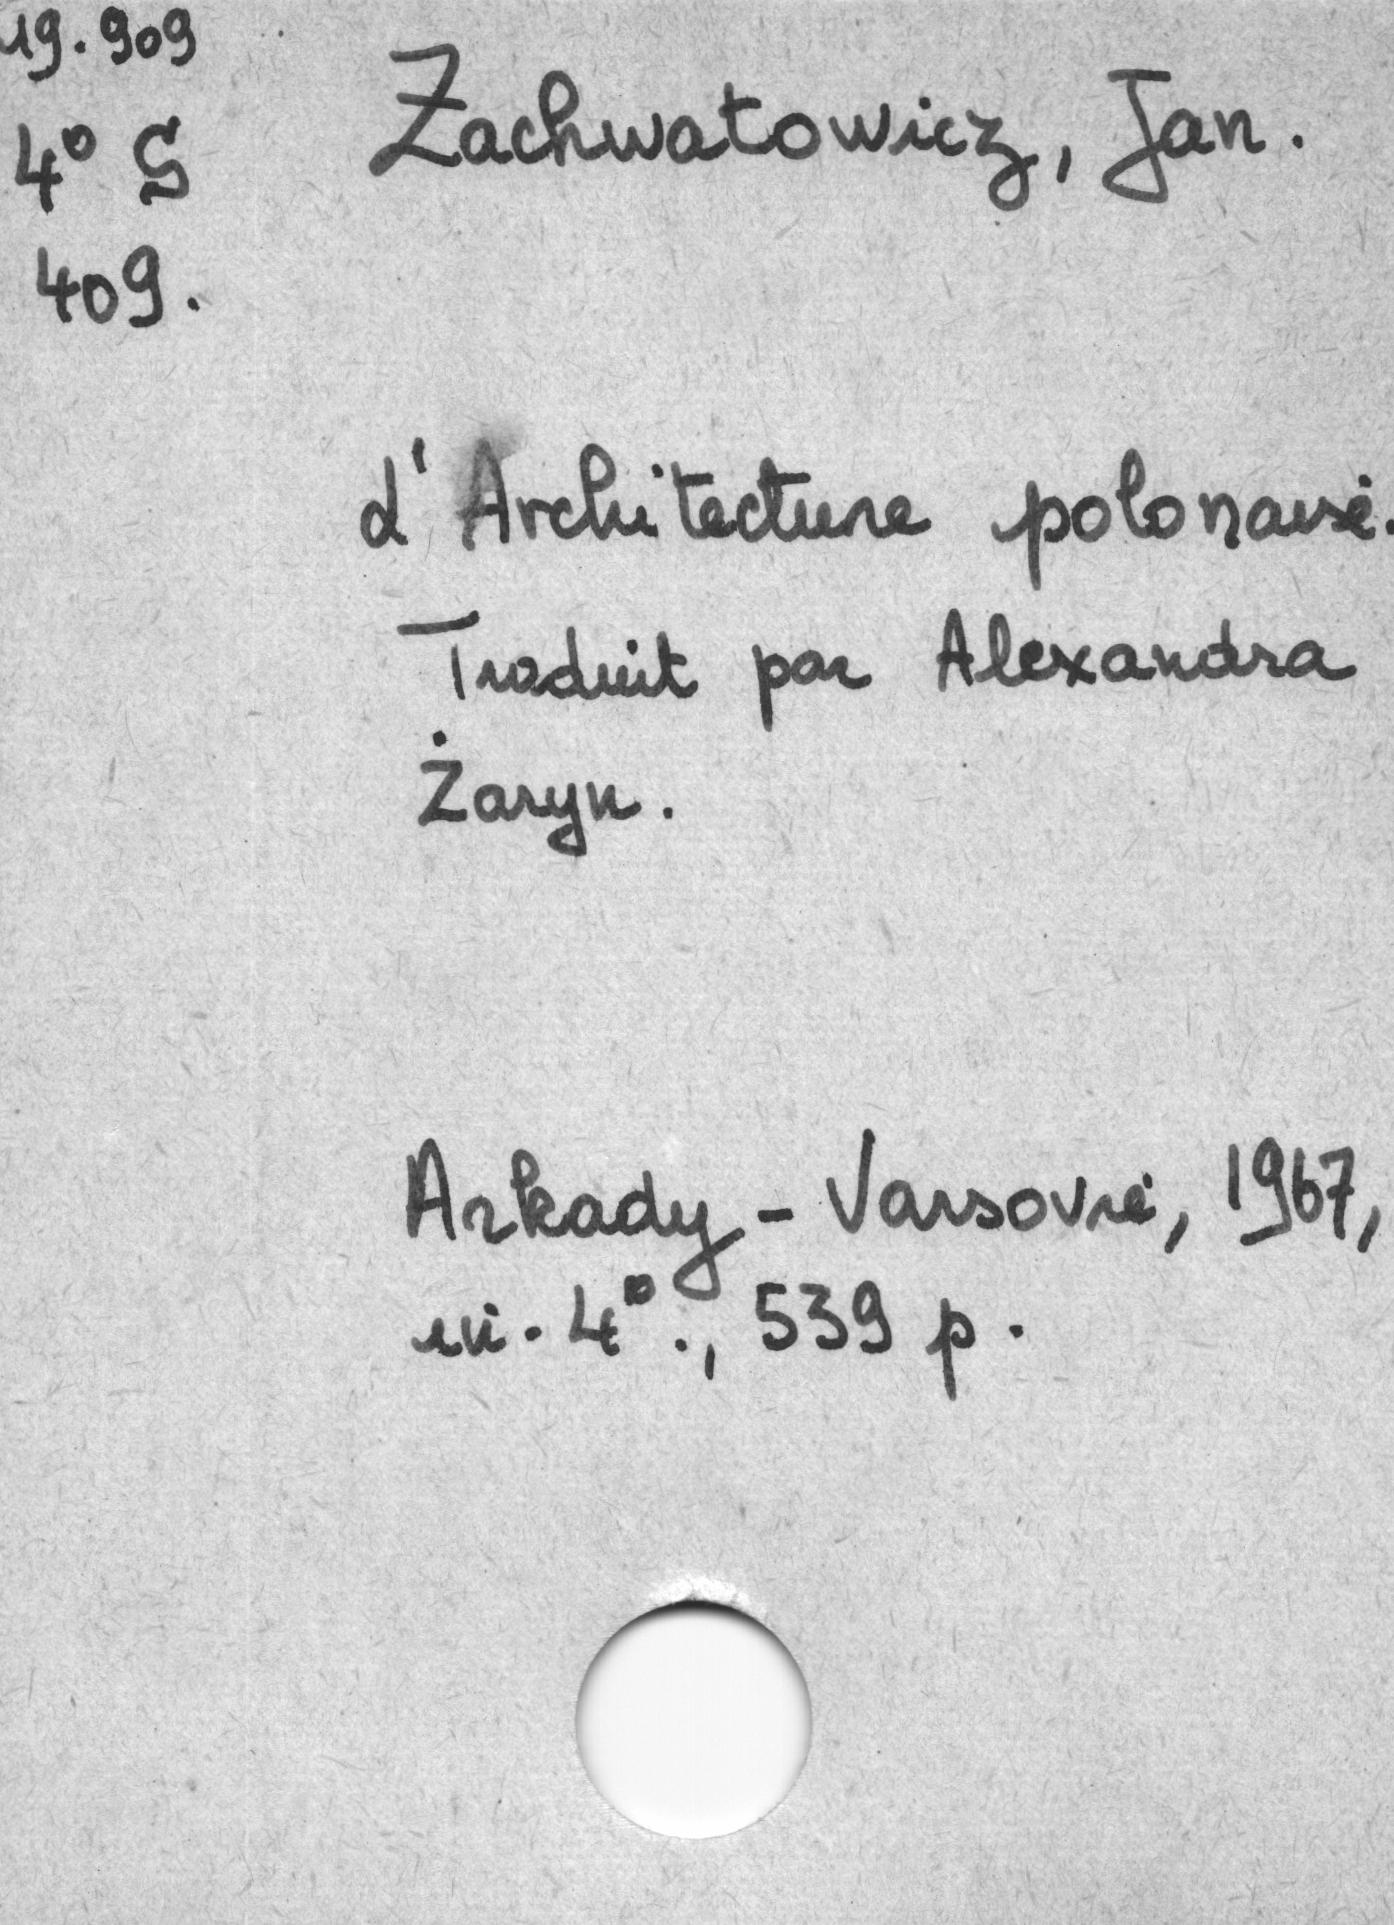 19.909
4° S
409.
Zachwatowicz, Jan.
L'Architecture polonaise.
Traduit par Alexandra
Żaryn.
Arkady - Varsovie, 1967,
in. 4°., 539 p.